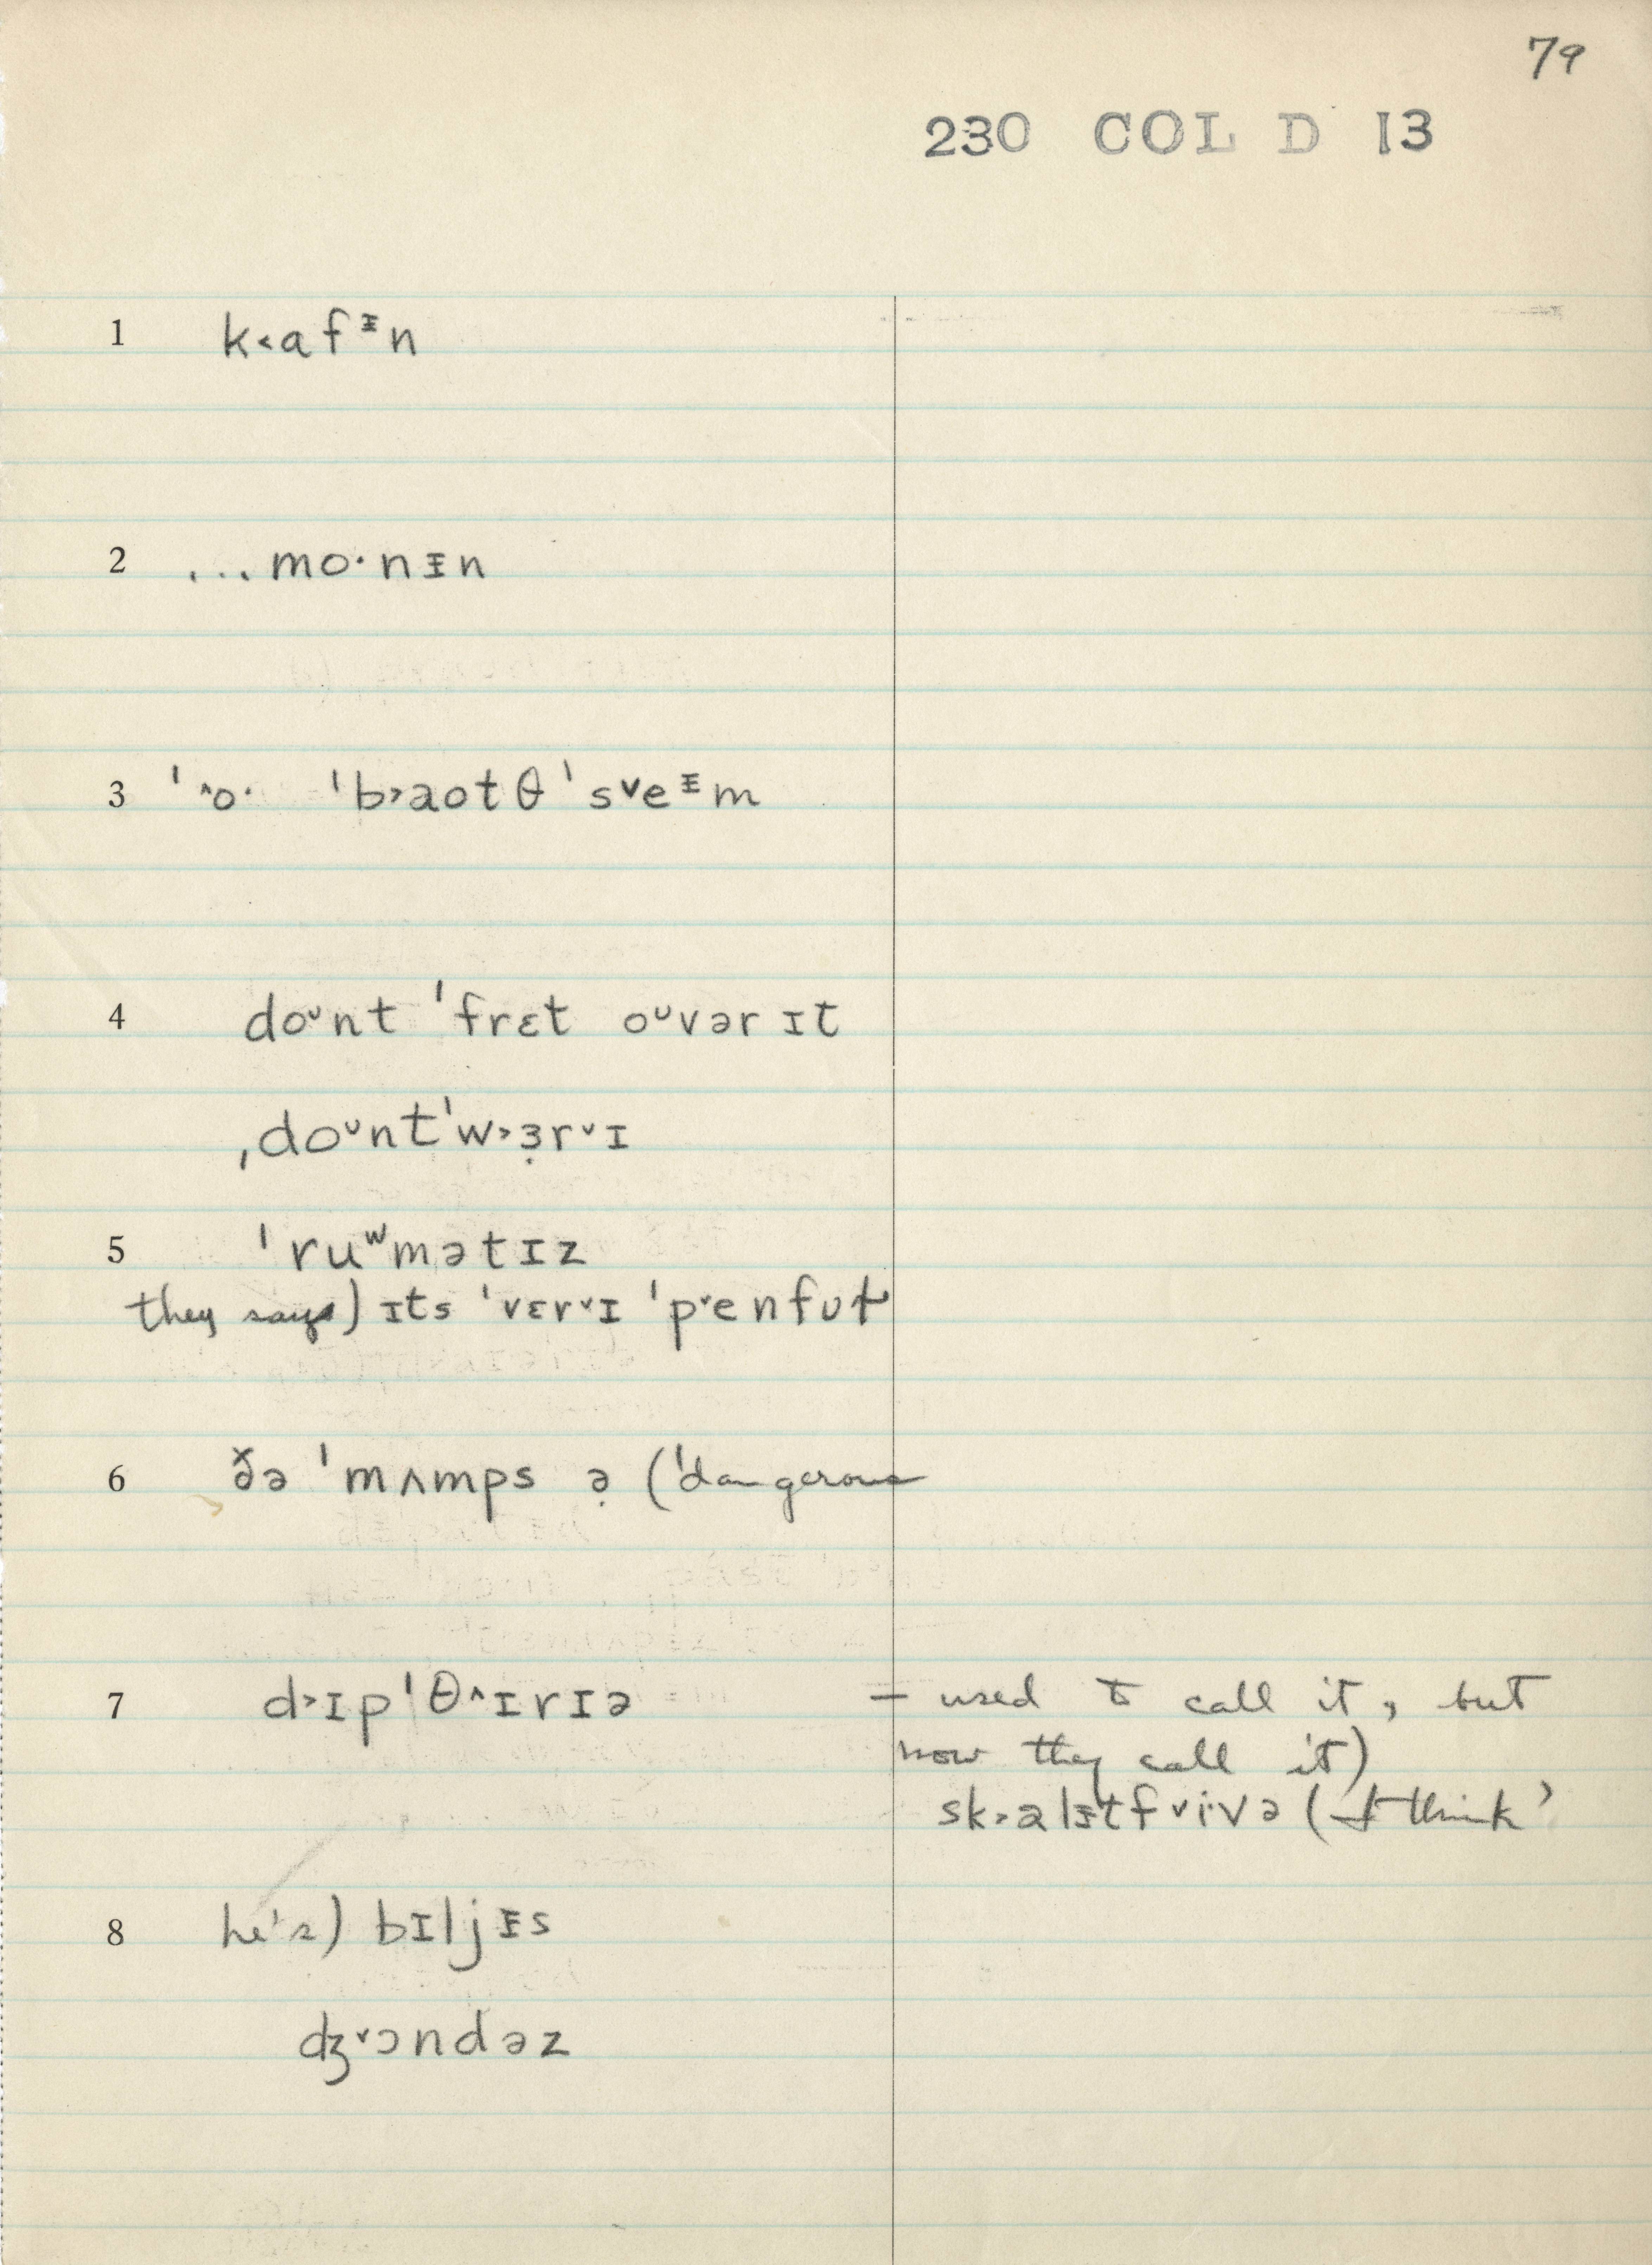 79
230 COL D 13
1 k˂afᵻn
2 ...mo·nᵻn
3 ˈ˄o· ˈb˃aotθ ˈs˅eᵻm
4 doᶷnt ˈfrɛt oᶷvər ɪt
ˌdoᶷnt ˈw˃ɜ̣r˅ɪ
5 ˈruʷmətɪz
they says) ɪts ˈvɛr˅ɪ ˈp˅enfʊɫ
6 ð̆ə ˈmʌmps ə̣ (ˈdangerous
7 d˃ɪpˈθ˄ɪrɪə – used to call it, but
now they call it)
sk˃alᵻtf˅i·və (I think)
8 he's) bɪljᵻs
ʤ˅ɔndəz